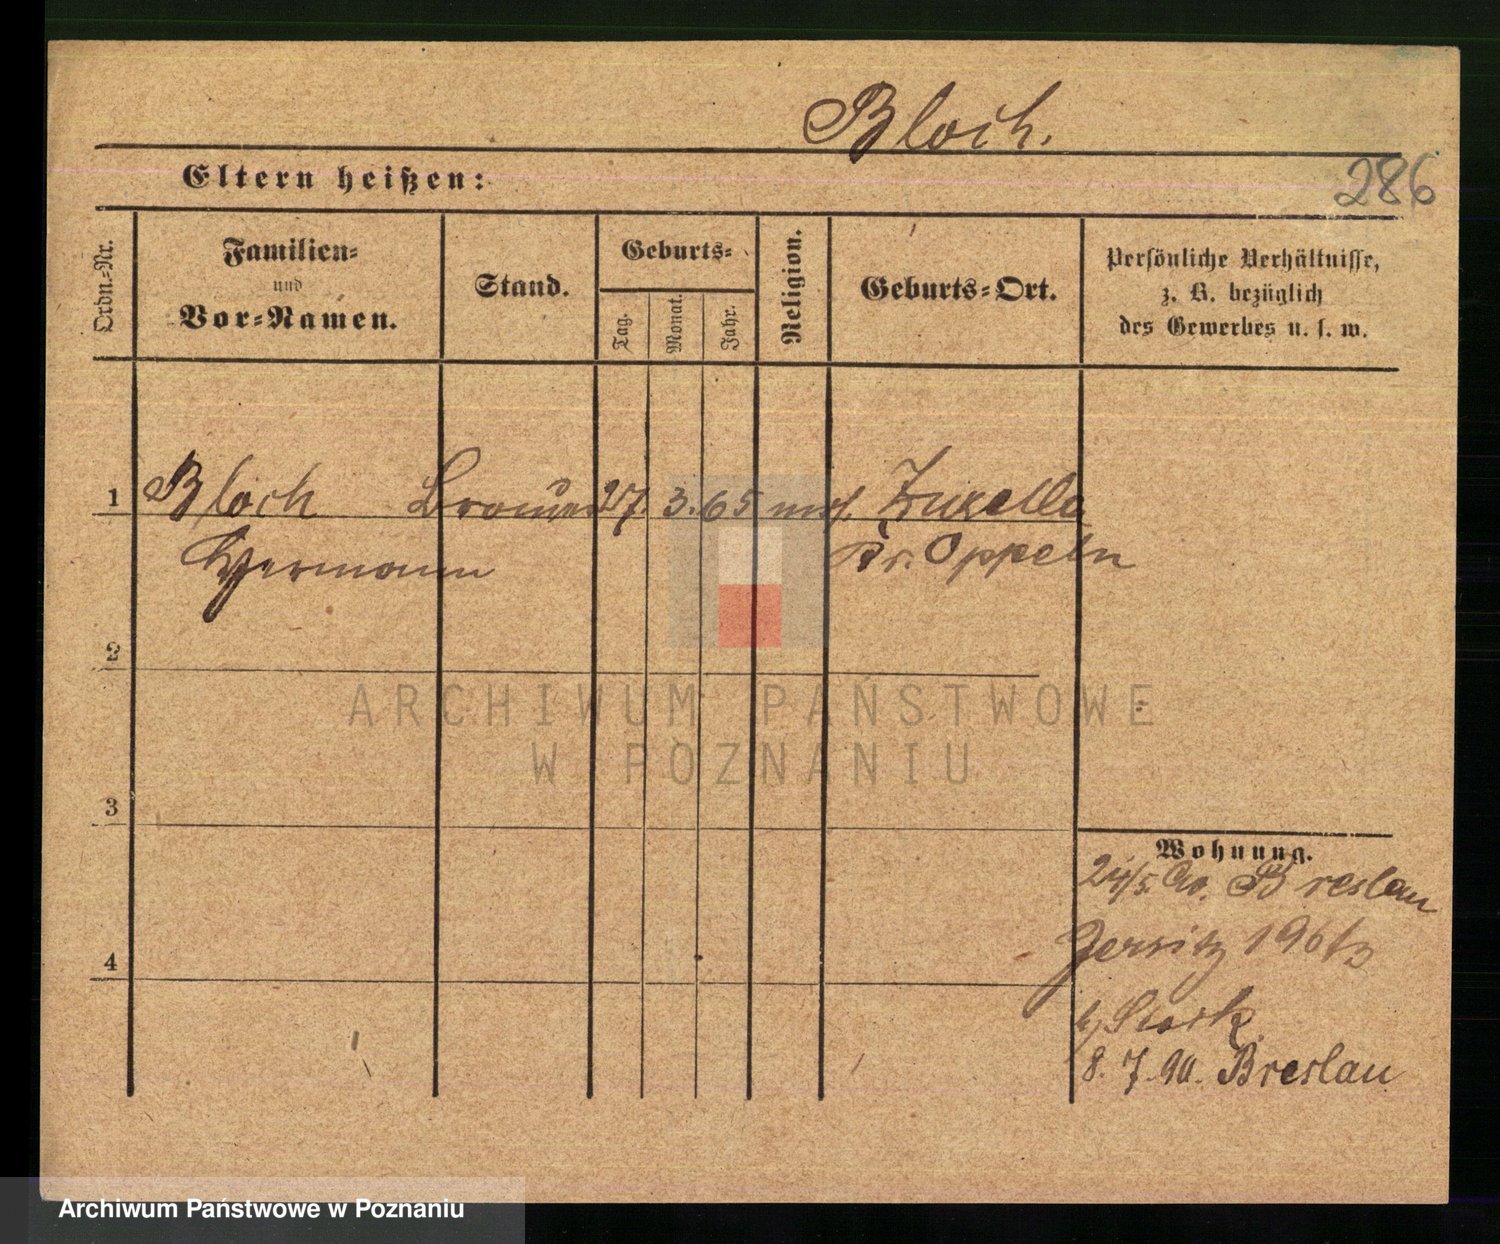 Bloch.
Eltern heißen:
286
Ordn.-Nr.
Familien-
und
Vor-Namen.
Stand.
Geburts-
Tag.
Monat.
Jahr.
Religion.
Geburts-Ort.
Persönliche Verhältnisse,
z. B. bezüglich
des Gewerbes u. s. w.
1 Bloch Brauer 27. 3. 65
Hermann Kr. Oppeln
2
ARCHIWUM PAŃSTWOWE
W POZNANIU
3
4
Wohnung.
24/5. 90. Breslau
Jersitz 196
b/ Stark
8. 7. 90. Breslau
Archiwum Państwowe w Poznaniu